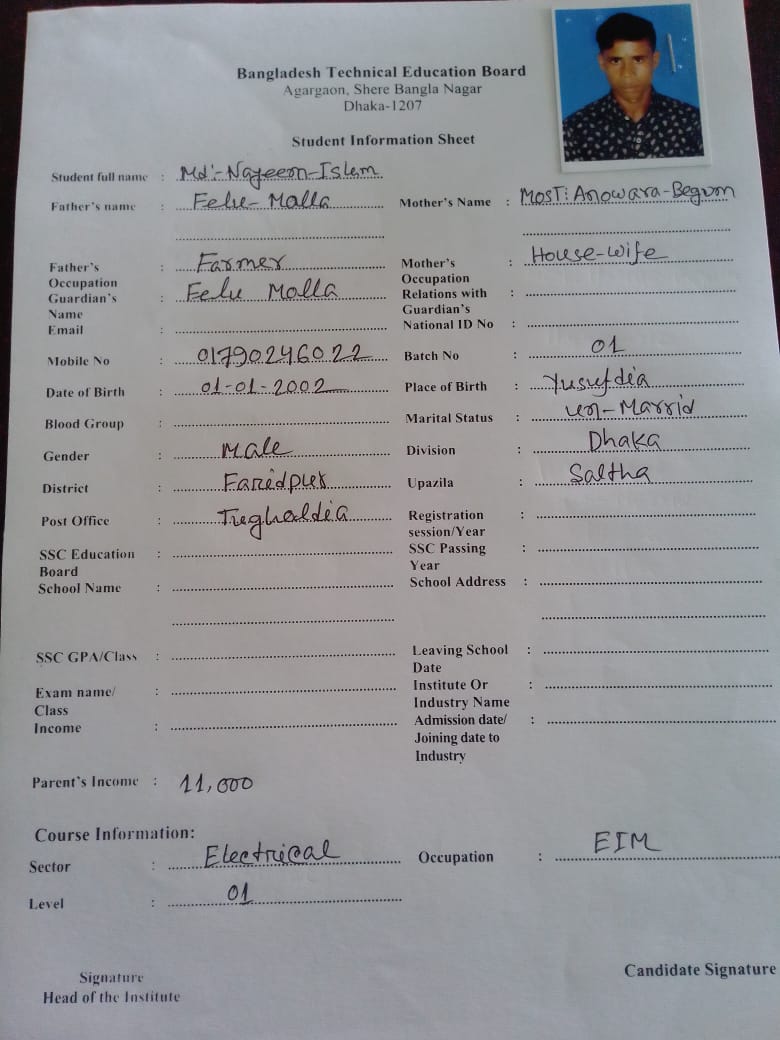 Bangladesh Technical Education Board
Agargaon, Shere Bangla Nagar
Dhaka-1207
Student Information Sheet
Student full name : Md:-Nazeem-Islam
Father's name : Felu-Molla Mother's Name : Most: Anowara-Begum
Father's Occupation : Farmer Mother's Occupation : House-wife
Guardian's Name : Felu Molla Relations with Guardian's :
Email : National ID No :
Mobile No : 01790246022 Batch No : 01
Date of Birth : 01-01-2002 Place of Birth : Yusufdia
Blood Group : Marital Status : un-Marrid
Gender : Male Division : Dhaka
District : Faridpur Upazila : Saltha
Post Office : Registration session/Year :
SSC Education Board : SSC Passing Year :
School Name : School Address :
SSC GPA/Class : Leaving School Date :
Exam name/ Class : Institute Or Industry Name :
Income : Admission date/ Joining date to Industry :
Parent's Income : 11,000
Course Information:
Sector : Electrical Occupation : EIM
Level : 01
Signature Candidate Signature
Head of the Institute